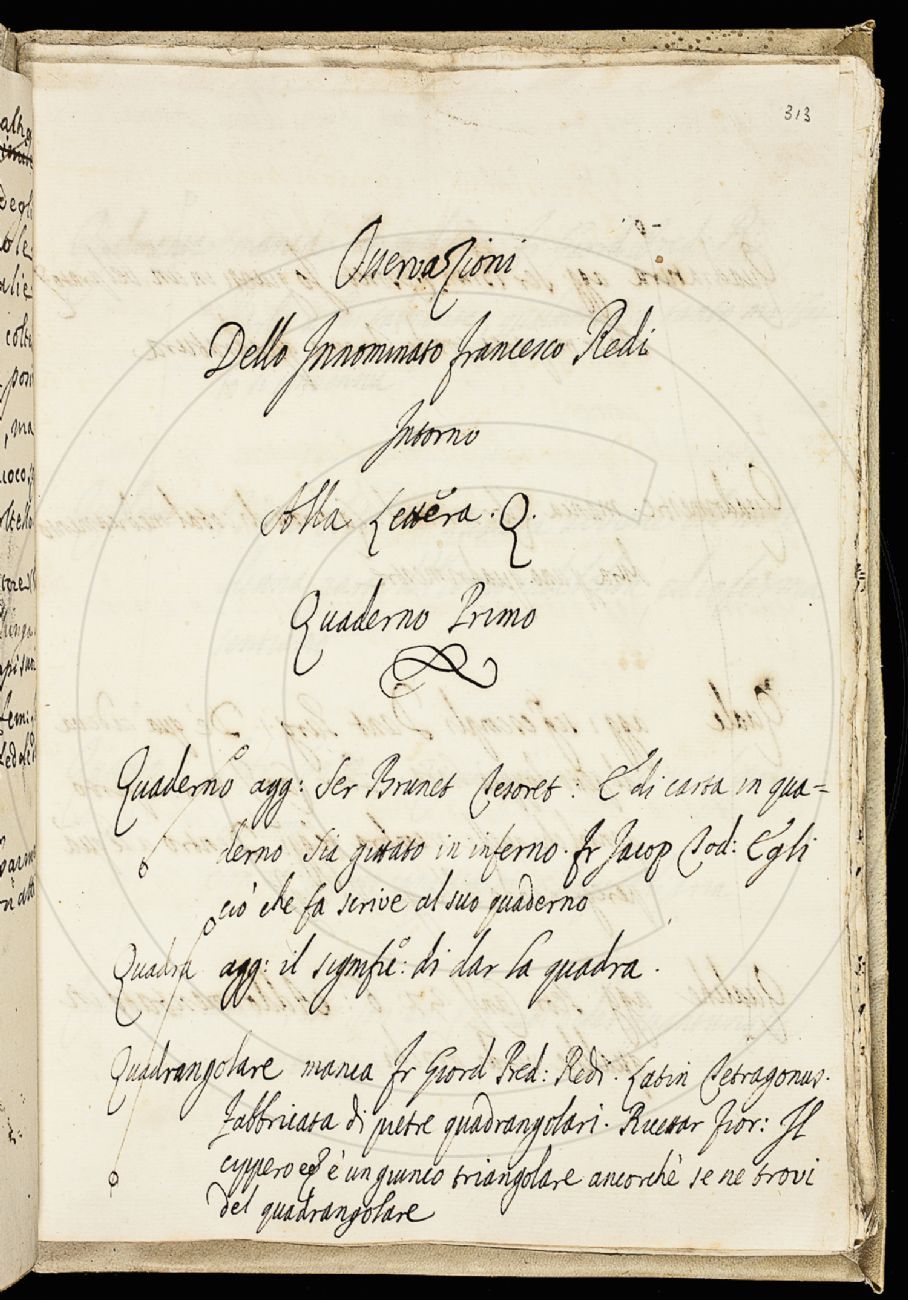 313
Osservazioni
Dello Innominato Francesco Redi
Intorno
Alla Lettera. Q.
Quaderno Primo
Quaderno agg: Ser Brunet Tesoret: E di carta in qua=
derno Sia gittato in inferno. Fr Jacop Tod: Egli
ciò che fa scrive al suo quaderno
Quadra agg: il signific: di dar la quadra.
Quadrangolare manca Fr Giord Pred: Redi. Latin Tetragonus.
Fabbricata di pietre quadrangolari. Ricettar Fior: Il
cippero è un giunco triangolare ancorchè se ne trovi
del quadrangolare